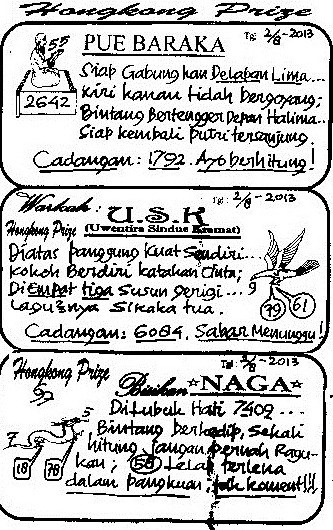 Hongkong Prize
PUE BARAKA
Tg: 2/8-2013
55
2642
Siap Gabungkan Delapan Lima...
Kiri kanan tidak bergoyang;
Bintang Bertengger Depan Halima...
Siap kembali Putri tersanjung.
Cadangan: 1792. Ayo berhitung!
Warkah:
Hongkong Prize
U.S.K
(Uwentira Sindue Kramat)
Tg: 2/8-2013
Diatas panggung Kuat Sendiri...
Kokoh Berdiri katakan Cinta;
Di Empat tiga Susun gerigi...
Lagu2nya Sikaka tua.
9
79 61
Cadangan: 6084. Sabar Menunggu!
Hongkong Prize
Tg: 2/8-2013
Bisikan ☆NAGA☆
Di Lubuk Hati 7402....
Bintang berkedip, Sekali
hitung jangan pernah Ragu-
kan; 58 Lelap terlena
dalam pangkuan;
7 5
18 78